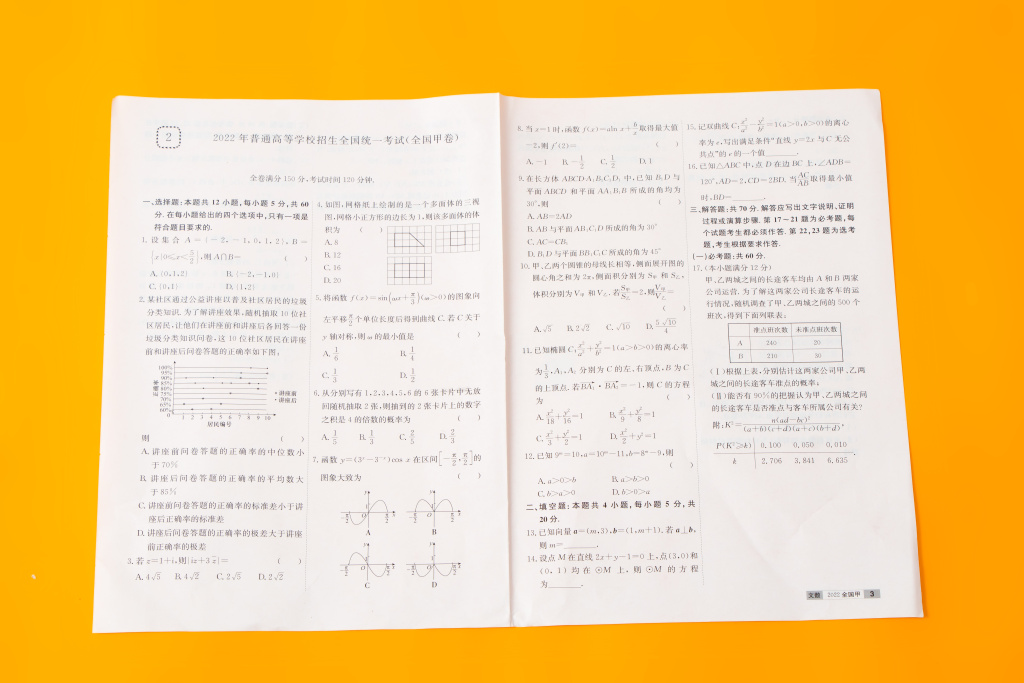 2
2022 年普通高等学校招生全国统一考试(全国甲卷)
全卷满分 150 分,考试时间 120 分钟.
一、选择题:本题共 12 小题,每小题 5 分,共 60
分. 在每小题给出的四个选项中,只有一项是
符合题目要求的.
1. 设集合 A={-2,-1,0,1,2}, B=
{x|0≤x<5/2},则 A∩B= ( )
A. {0,1,2} B. {-2,-1,0}
C. {0,1} D. {1,2}
2. 某社区通过公益讲座以普及社区居民的垃圾
分类知识. 为了解讲座效果,随机抽取 10 位社
区居民,让他们在讲座前和讲座后各回答一份
垃圾分类知识问卷,这 10 位社区居民在讲座
前和讲座后问卷答题的正确率如下图:
100%
95%
90%
85%
80%
75%
70%
65%
60%
0
正确率
1 2 3 4 5 6 7 8 9 10
居民编号
* 讲座前
• 讲座后
则 ( )
A. 讲座前问卷答题的正确率的中位数小
于 70%
B. 讲座后问卷答题的正确率的平均数大
于 85%
C. 讲座前问卷答题的正确率的标准差小于讲
座后正确率的标准差
D. 讲座后问卷答题的正确率的极差大于讲座
前正确率的极差
3. 若 z=1+i,则|iz+3z̄|= ( )
A. 4√5 B. 4√2 C. 2√5 D. 2√2
4. 如图,网格纸上绘制的是一个多面体的三视
图,网格小正方形的边长为 1,则该多面体的体
积为 ( )
A. 8
B. 12
C. 16
D. 20
5. 将函数 f(x)=sin(ωx+π/3)(ω>0)的图象向
左平移 π/2 个单位长度后得到曲线 C. 若 C 关于
y 轴对称,则 ω 的最小值是 ( )
A. 1/6 B. 1/4
C. 1/3 D. 1/2
6. 从分别写有 1,2,3,4,5,6 的 6 张卡片中无放
回随机抽取 2 张,则抽到的 2 张卡片上的数字
之积是 4 的倍数的概率为 ( )
A. 1/5 B. 1/3 C. 2/5 D. 2/3
7. 函数 y=(3ˣ-3⁻ˣ)cos x 在区间[-π/2,π/2]的
图象大致为 ( )
A B
C D
8. 当 x=1 时,函数 f(x)=aln x+b/x 取得最大值
-2,则 f′(2)= ( )
A. -1 B. -1/2 C. 1/2 D. 1
9. 在长方体 ABCD-A₁B₁C₁D₁ 中,已知 B₁D 与
平面 ABCD 和平面 AA₁B₁B 所成的角均为
30°,则 ( )
A. AB=2AD
B. AB 与平面 AB₁C₁D 所成的角为 30°
C. AC=CB₁
D. B₁D 与平面 BB₁C₁C 所成的角为 45°
10. 甲、乙两个圆锥的母线长相等,侧面展开图的
圆心角之和为 2π,侧面积分别为 S甲 和 S乙,
体积分别为 V甲 和 V乙. 若 S甲/S乙=2,则 V甲/V乙=
( )
A. √5 B. 2√2 C. √10 D. 5√10/4
11. 已知椭圆 C:x²/a²+y²/b²=1(a>b>0)的离心率
为 1/3,A₁,A₂ 分别为 C 的左、右顶点,B 为 C
的上顶点. 若 BA₁·BA₂=-1,则 C 的方程
为 ( )
A. x²/18+y²/16=1 B. x²/9+y²/8=1
C. x²/3+y²/2=1 D. x²/2+y²=1
12. 已知 9ᵐ=10,a=10ᵐ-11,b=8ᵐ-9,则
( )
A. a>0>b B. a>b>0
C. b>a>0 D. b>0>a
二、填空题:本题共 4 小题,每小题 5 分,共
20 分.
13. 已知向量 a=(m,3),b=(1,m+1). 若 a⊥b,
则 m=______.
14. 设点 M 在直线 2x+y-1=0 上,点(3,0)和
(0,1)均在⊙M 上,则⊙M 的方程
为______.
15. 记双曲线 C:x²/a²-y²/b²=1(a>0,b>0)的离心
率为 e,写出满足条件"直线 y=2x 与 C 无公
共点"的 e 的一个值______.
16. 已知△ABC 中,点 D 在边 BC 上,∠ADB=
120°,AD=2,CD=2BD. 当 AC/AB 取得最小值
时,BD=______.
三、解答题:共 70 分. 解答应写出文字说明、证明
过程或演算步骤. 第 17~21 题为必考题,每
个试题考生都必须作答. 第 22,23 题为选考
题,考生根据要求作答.
(一)必考题:共 60 分.
17. (本小题满分 12 分)
甲、乙两城之间的长途客车均由 A 和 B 两家
公司运营. 为了解这两家公司长途客车的运
行情况,随机调查了甲、乙两城之间的 500 个
班次,得到下面列联表:
准点班次数 未准点班次数
A 240 20
B 210 30
(Ⅰ)根据上表,分别估计这两家公司甲、乙两
城之间的长途客车准点的概率;
(Ⅱ)能否有 90%的把握认为甲、乙两城之间
的长途客车是否准点与客车所属公司有关?
附:K²=n(ad-bc)²/(a+b)(c+d)(a+c)(b+d),
P(K²≥k) 0.100 0.050 0.010
k 2.706 3.841 6.635
文数 2022 全国甲 3